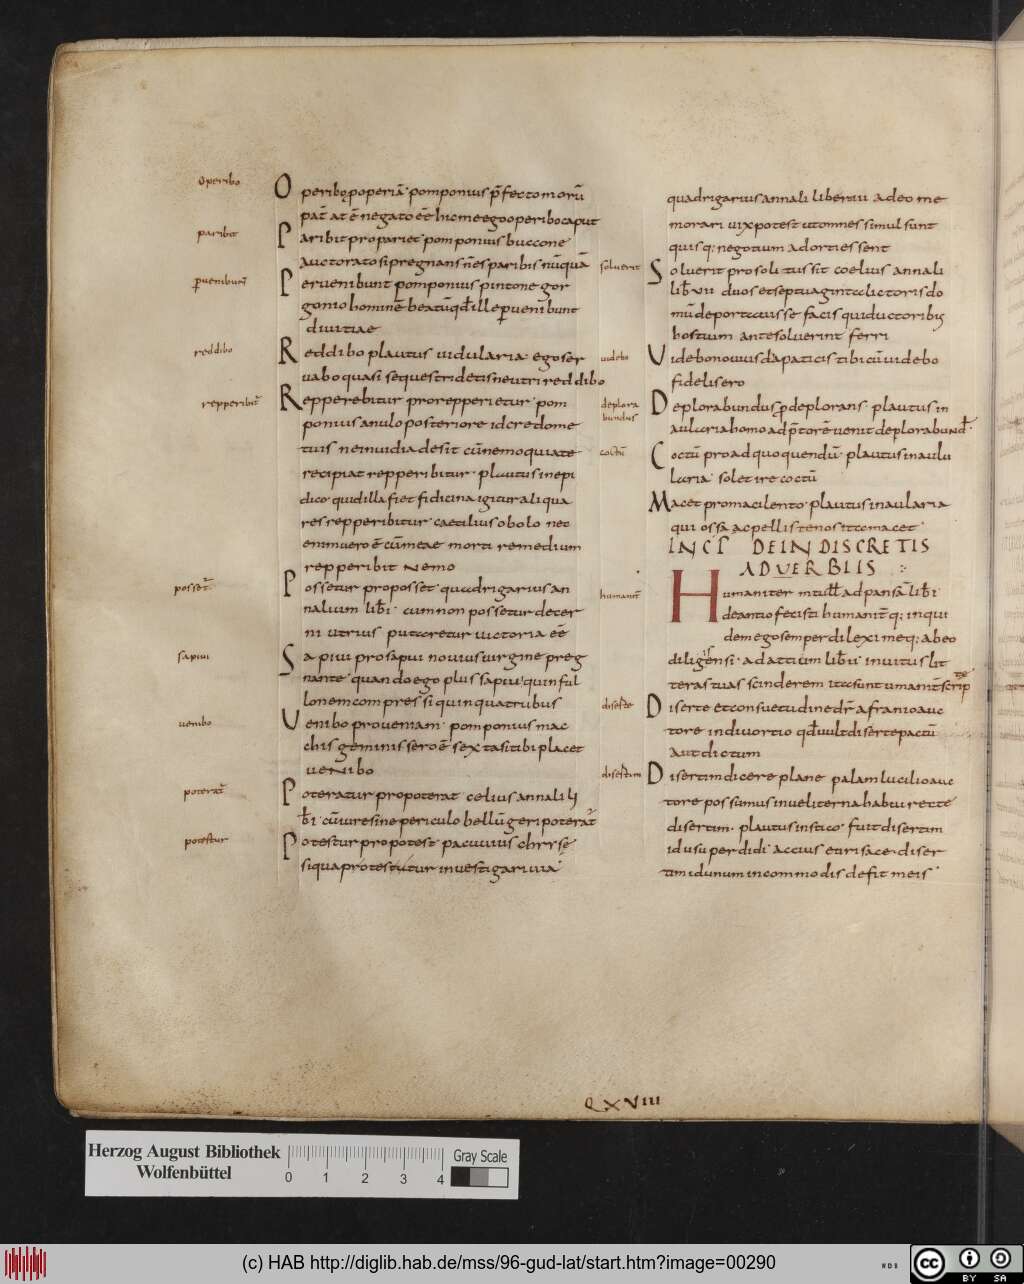 operibo
O peribo p̱ operiā· pomponius p̄fecto morū
pat̄ at ē negato eē hic me ego operibo caput
paribit
P aribit pro pariet· pomponius buccone
auctorato si pregnans n̄ es paribis nūquā
ꝑuenibunt
P ervenibunt pomponius pintone gor
gonio hominē beatū qđ ille ꝑvenibunt
divitiae
reddibo
R eddibo plautus vidularia· ego ser
vabo quasi sequestri detis neutri reddibo
repperibit̄
R epperebitur pro repperietur· pom
ponius anulo posteriore id credo me
tuis ne invidia desit cū nemo quiate
recipiat repperibitur· plautus in epi
dico· quid illa fiet fidicina igitur aliqua
res repperibitur· caecilius obolo nec
enimvero ē cū meae morti remedium
repperibit nemo
posset̄
P ossetur pro posset· quadrigarius an
nalium lib̄i· cum non possetur decer
ni utrius putaretur victoria eē
sapivi
S apivi pro sapui novius virgine preg
nante· quando ego plus sapivi quin ful
lonem compressi quinquatribus
venibo
V enibo pro veniam· pomponius mac
chis geminis sero ē sex ta si tibi placet
venibo
poterat̄
P oteratur pro poterat· celius annali
b̄i· cū iure sine periculo bellū geri poterat̄
potestur
P otestur pro potest· pacuvius chrrse
siqua protestutur investigari via
quadrigarius annali libri vii adeo me
morari vix potest ut omnes simul sunt
quisq; negotium adorti essent
solverit
S olverit pro solitus sit coelius annali
lib̄ vii duos et septuaginta lictoris do
mū deportavisse facis qui ductoribus
hostium ante solverint ferri
videbo
V idebo novius dapaticis tibi cū videbo
fidelis ero
deplora
bundus
D eplorabundus p̱ deplorans· plautus in
aulularia homo ad p̄torē venit deplorabund·
coctū
C octū pro ad quoquendū· plautus in aulu
laria· solet ire coctū
M acet pro macilento· plautus in aularia
qui ossa ac pellis tenos ita macet·
INCP DE INDISCRETIS
ADVERBIIS
humanit̄
H umaniter m tull ad pansā lib̄i·
de antio fecisti humanit̄q; inqui
dem ego semper dilexi meq; ab eo
diligensi· ad attium lib̄ii· invitus lit
teras tuas scinderem ita sunt umanit̄ scrip
te
diserte
D iserte et consuetudine dr̄ afranio auc
tore in divortio qđ vult diserte pactū
aut dictum
disertim
D isertim dicere plane palam lucilio auc
tore possumus in veliterna habui recte
disertim· plautus in stico· fuit disertim
id usu perdidi accius eurisace· diser
tim id unum incommodis defit meis·
QXVIII
Herzog August Bibliothek
Wolfenbüttel
0 1 2 3 4
Gray Scale
(c) HAB http://diglib.hab.de/mss/96-gud-lat/start.htm?image=00290
WDB
cc BY SA